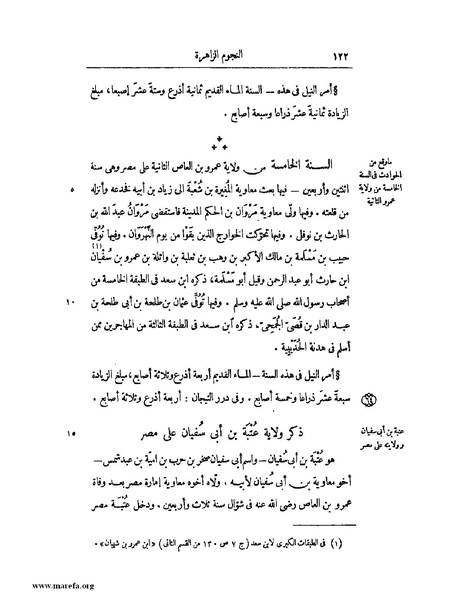 ١٢٢
النجوم الزاهرة
§ أمر النيل فى هذه — السنة الماء القديم ثمانية أذرع وستة عشر إصبعا، مبلغ
الزيادة ثمانية عشر ذراعا وسبعة أصابع .
***
السنة الخامسة من ولاية عمرو بن العاص الثانية على مصر وهى سنة
ما وقع من
الحوادث فى السنة
الخامسة من ولاية
عمرو الثانية
اثنتين وأربعين — فيها بعث معاوية المُغيرة بن شُعْبة الى زياد بن أبيه فخدعه وأنزله
٥
من قلعته . وفيها ولّى معاوية مَرْوَان بن الحكم المدينة فاستقضى مَرْوَانُ عبدَ الله بن
الحارث بن نوفل . وفيها تحرّكت الخوارج الذين بقَوْا من يوم النَّهْرَوَان . وفيها تُوُفّى
حبيب بن مَسْلَمة بن مالك الأكبر بن وهب بن ثعلبة بن واثلة بن عمرو بن سُفْيان (١)
ابن حارث أبو عبد الرحمن وقيل أبو مَسْلمة، ذكره ابن سعد فى الطبقة الخامسة من
أصحاب رسول الله صلى الله عليه وسلم . وفيها تُوُفّى عثمان بن طلحة بن أبى طلحة بن
١٠
عبد الدار بن قُصَىّ الجُمَحِىّ، ذكره ابن سعد فى الطبقة الثالثة من المهاجرين ممن
أسلم فى هدنة الحُدَيْبِيَة .
§ أمر النيل فى هذه السنة — الماء القديم أربعة أذرع وثلاثة أصابع، مبلغ الزيادة
سبعة عشر ذراعا وخمسة أصابع . وفى درر التيجان : أربعة أذرع وثلاثة أصابع .
ذكر ولاية عُتْبة بن أبى سُفْيان على مصر
١٥
عتبة بن أبى سفيان
وولايته على مصر
هو عُتْبة بن أبى سُفْيان — واسم أبى سفيان صخر بن حرب بن أميّة بن عبد شمس —
أخو معاوية بن أبى سُفْيان لأبيه . ولّاه أخوه معاوية إمارة مصر بعد وفاة
عمرو بن العاص رضى الله عنه فى شوّال سنة ثلاث وأربعين . ودخل عُتْبة مصر
(١) فى الطبقات الكبرى لابن سعد (ج ٧ ص ١٣٠ من القسم الثانى) «ابن عمرو بن شيبان» .
www.marefa.org